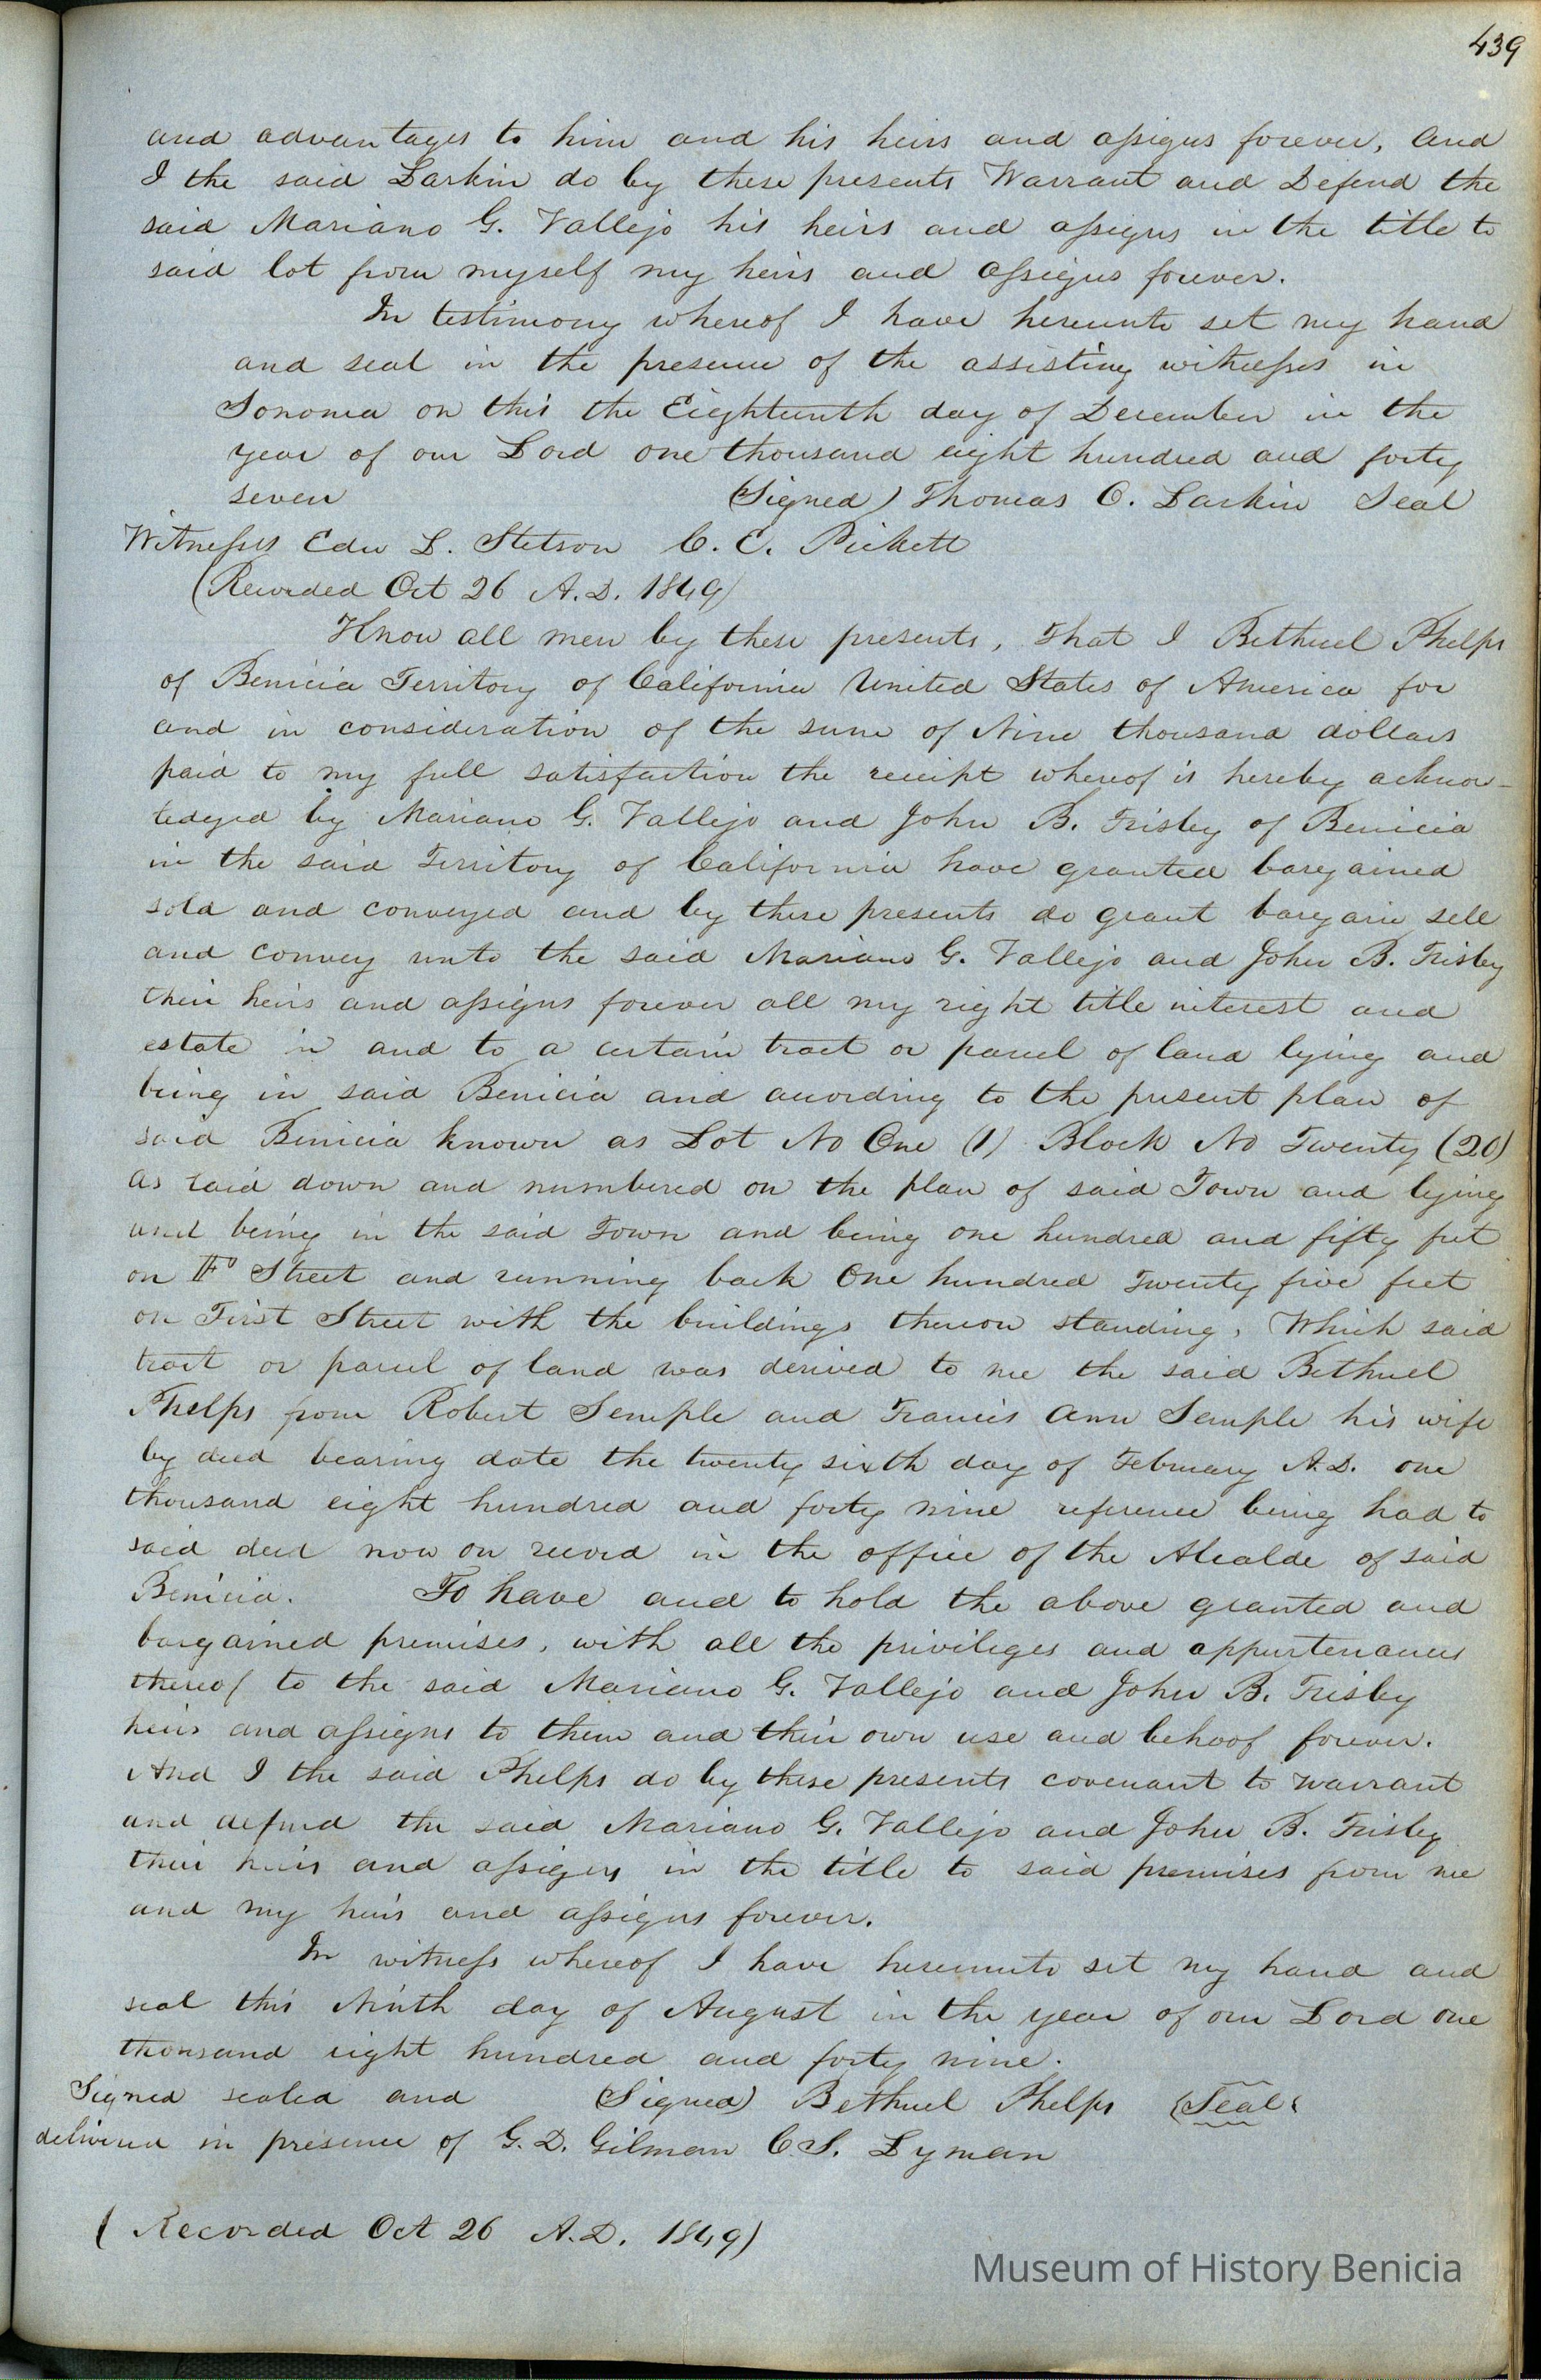 439
and advantages to him and his heirs and assigns forever, And
I the said Larkin do by these presents Warrant and Defend the
said Mariano G. Vallejo his heirs and assigns in the title to
said lot from myself my heirs and assigns forever.
In testimony whereof I have hereunto set my hand
and seal in the presence of the assisting witnesses in
Sonoma on this the Eighteenth day of December in the
year of our Lord one thousand eight hundred and forty
seven (Signed) Thomas O. Larkin Seal
Witnesses Edw L. Stetson C. E. Pickett
(Recorded Oct 26 A.D. 1849)
Know all men by these presents, That I Bethuel Phelps
of Benicia Territory of California United States of America for
and in consideration of the sum of Nine thousand dollars
paid to my full satisfaction the receipt whereof is hereby acknow-
ledged by Mariano G. Vallejo and John B. Frisby of Benicia
in the said Territory of California have granted bargained
sold and conveyed and by these presents do grant bargain sell
and convey unto the said Mariano G. Vallejo and John B. Frisby
their heirs and assigns forever all my right title interest and
estate in and to a certain tract or parcel of land lying and
being in said Benicia and according to the present plan of
said Benicia known as Lot No One (1) Block No Twenty (20)
as laid down and numbered on the plan of said Town and lying
and being in the said Town and being one hundred and fifty feet
on F Street and running back One hundred Twenty five feet
on First Street with the buildings thereon standing, Which said
tract or parcel of land was derived to me the said Bethuel
Phelps from Robert Semple and Francis Ann Semple his wife
by deed bearing date the twenty sixth day of February A.D. one
thousand eight hundred and forty nine reference being had to
said deed now on record in the office of the Alcalde of said
Benicia. To have and to hold the above granted and
bargained premises, with all the privileges and appurtenances
thereof to the said Mariano G. Vallejo and John B. Frisby
heirs and assigns to them and their own use and behoof forever.
And I the said Phelps do by these presents covenant to warrant
and defend the said Mariano G. Vallejo and John B. Frisby
their heirs and assigns in the title to said premises from me
and my heirs and assigns forever.
In witness whereof I have hereunto set my hand and
seal this Ninth day of August in the year of our Lord one
thousand eight hundred and forty nine.
Signed sealed and (Signed) Bethuel Phelps (Seal)
delivered in presence of G. D. Gilman C. S. Lyman
(Recorded Oct 26 A.D. 1849)
Museum of History Benicia